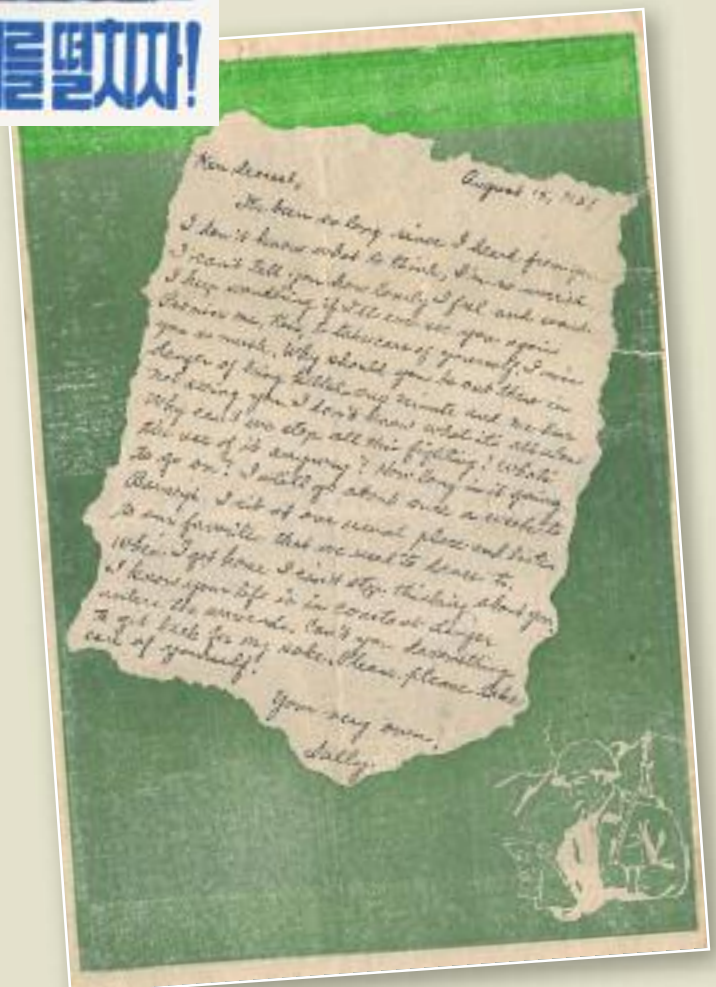 를 떨치자!
Ken dearest, August 15, 195
It's been so long since I heard from you
I don't know what to think, I'm so worried
I can't tell you how lonely I feel and
I keep wondering if I'll ever see you again
Promise me, Ken, to take care of yourself, I miss
you so much. Why should you be out there in
danger of being killed any minute and me here
not seeing you I don't know what it's all about
Why can't we stop all this fighting? What's
the use of it anyway? How long is it going
to go on? I still go about once a week to
I sit at our usual place and listen
to our favorite that we used to dance to.
When I get home I can't stop thinking about you,
I know your life is in constant danger
Can't you do something
to get back for my sake. Please, please take
care of yourself!
Your very own,
Sally.